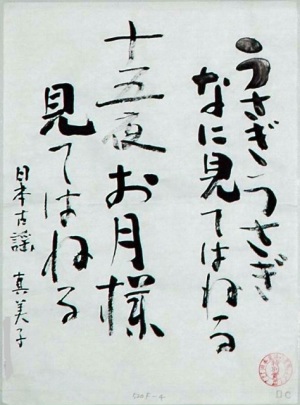 うさぎうさぎ
なに見てはねる
十五夜お月様
見てはねる
日本古謡 真美子